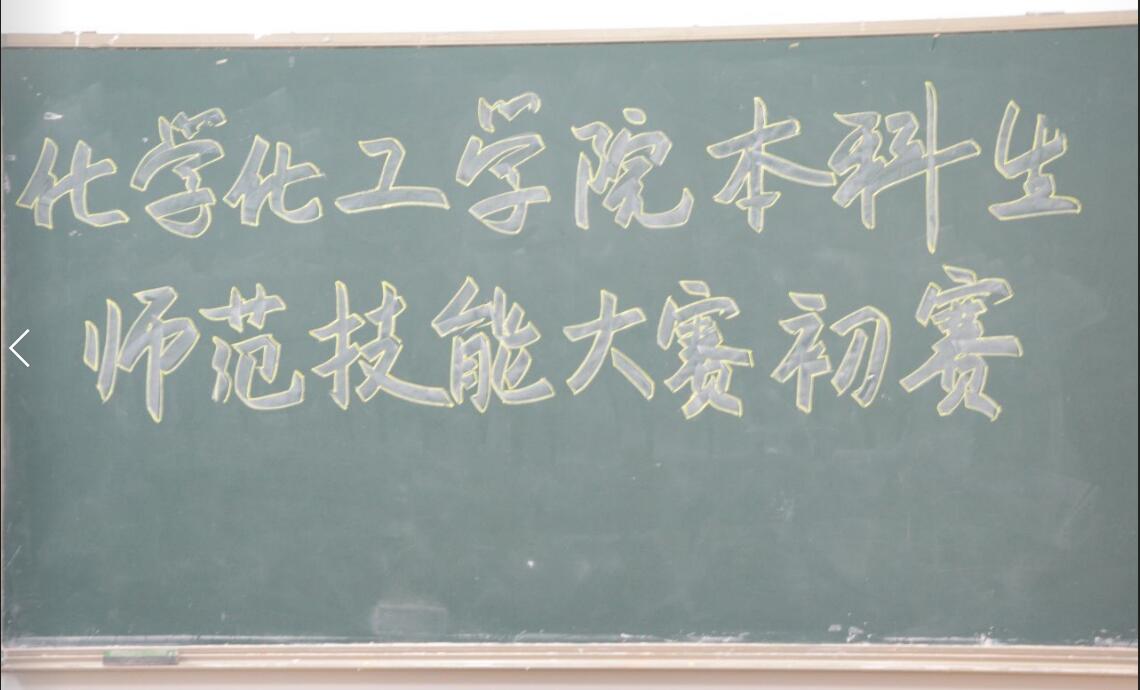 化学化工学院本科生
师范技能大赛初赛